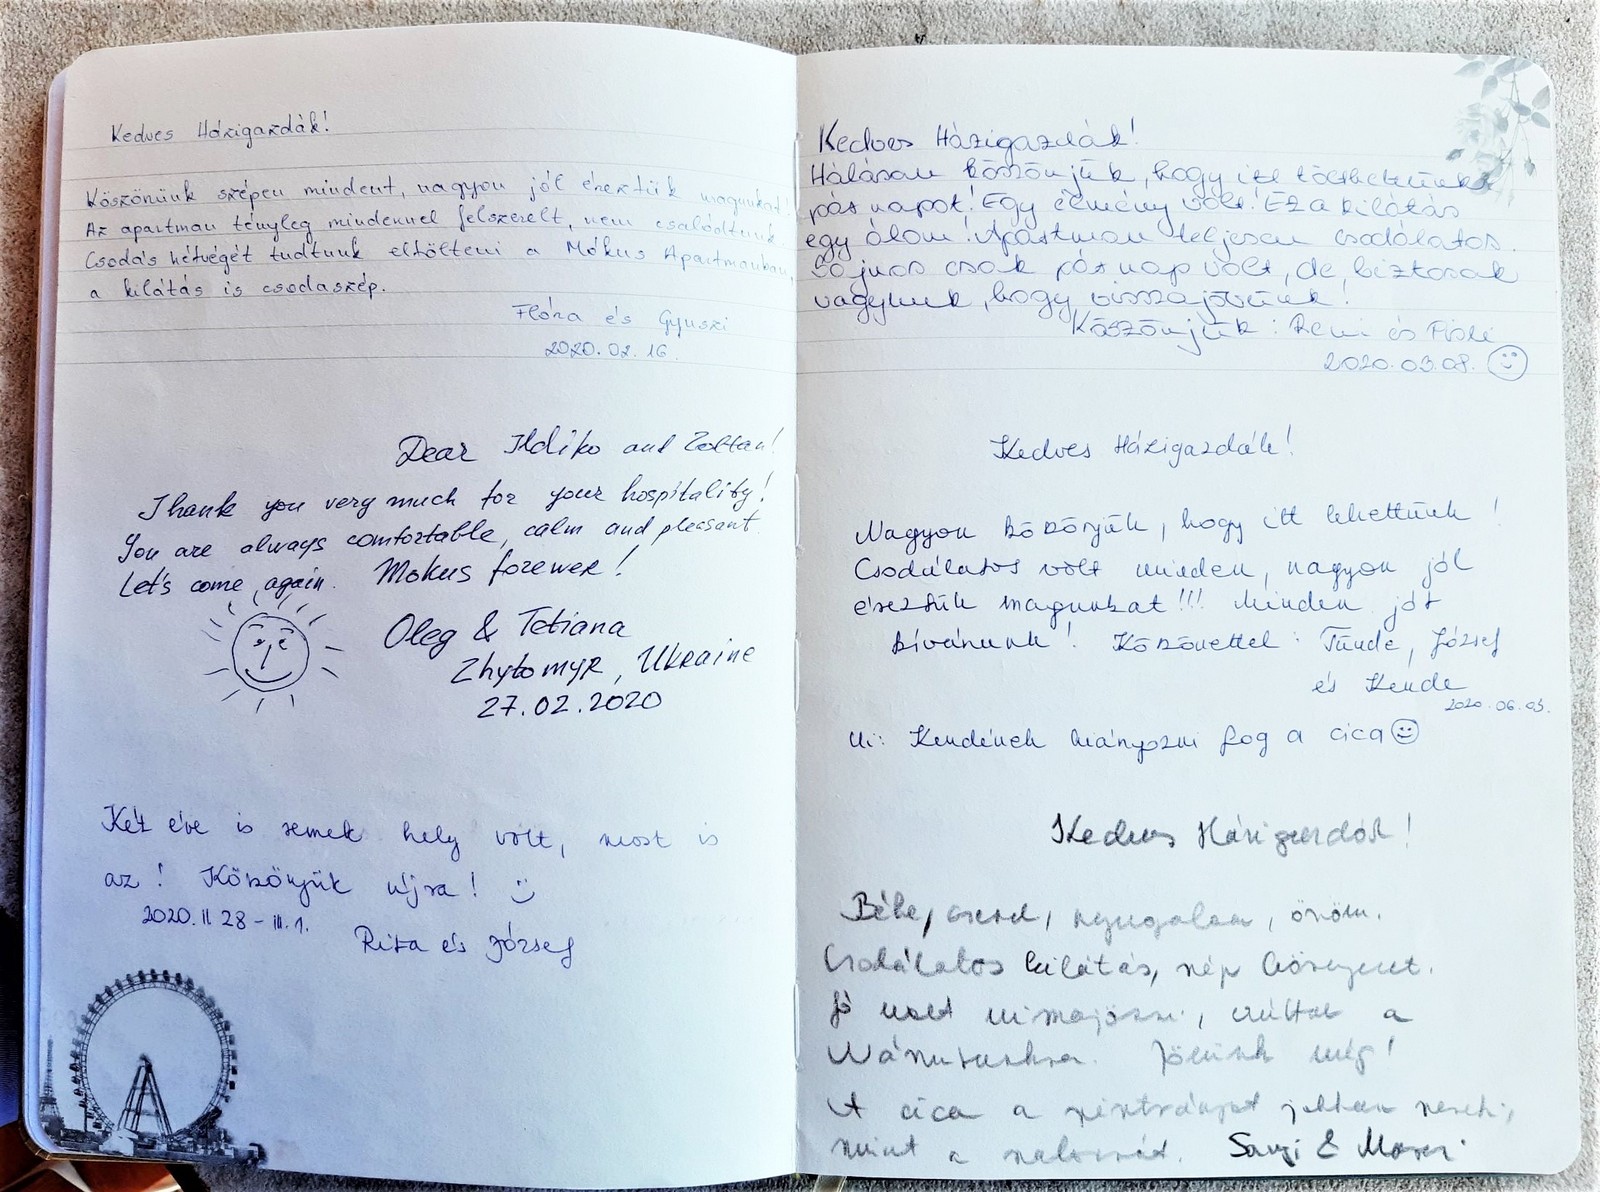 Kedves Házigazdák!
Köszönünk szépen mindent, nagyon jól éreztük magunkat!
Az apartman tényleg mindennel felszerelt, nem csalódtunk.
Csodás hétvégét tudtunk eltölteni a Mókus Apartmanban,
a kilátás is csodaszép.
Flóra és Gyuszi
2020.02.16.
Dear Ildiko and Zoltan!
Thank you very much for your hospitality!
You are always comfortable, calm and pleasant.
Let's come again. Mokus forewer!
Oleg & Tetiana
Zhytomyr, Ukraine
27.02.2020
Két éve is remek hely volt, most is
az! Köszönjük újra!
2020.II 28 - III.1.
Rita és József
Kedves Házigazdák!
Hálásan köszönjük, hogy itt tölthettünk
pár napot! Egy élmény volt! Ez a kilátás
egy álom! Apartman teljesen csodálatos.
Sajnos csak pár nap volt, de biztosak
vagyunk, hogy visszajövünk!
Köszönjük: Reni és
2020.03.08.
Kedves Házigazdák!
Nagyon köszönjük, hogy itt lehettünk!
Csodálatos volt minden, nagyon jól
éreztük magunkat!!! Minden jót
kívánunk! Köszönettel: Tünde, József
és Kende
2020.06.03.
Ui: Kendének hiányozni fog a cica
Kedves Házigazdák!
Béke, csend, nyugalom, öröm.
Csodálatos kilátás, szép környezet.
Jó volt visszajönni, ezúttal a
Jövünk még!
A cica a jobban szereti,
mint a szalonnát. &